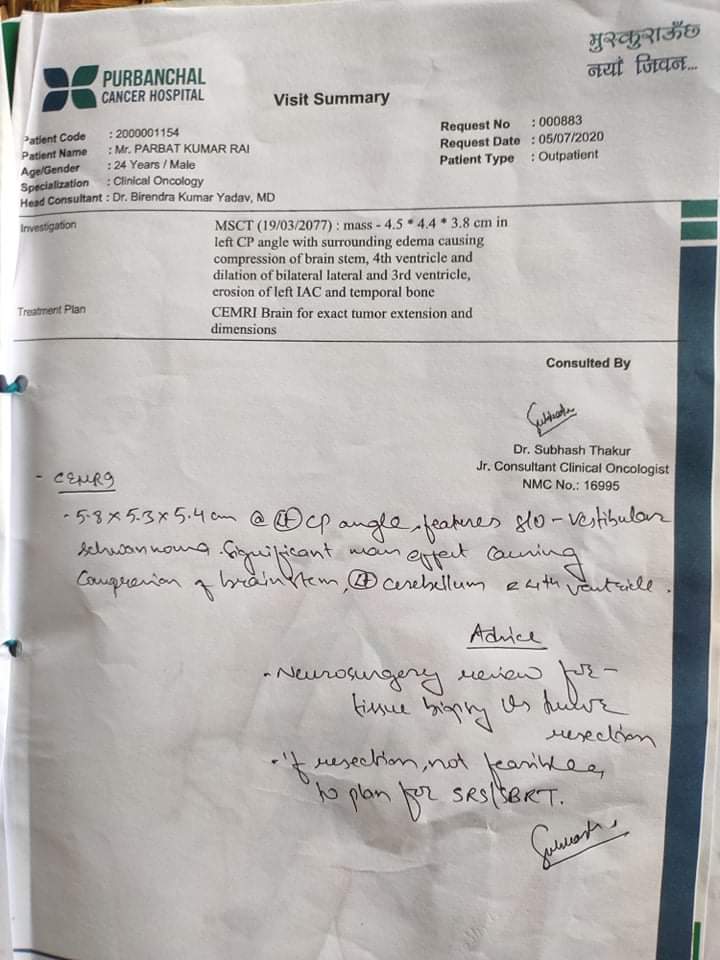 मुस्कुराऊँछ
नयाँ जिवन...
PURBANCHAL
CANCER HOSPITAL
Visit Summary
Patient Code : 2000001154
Patient Name : Mr. PARBAT KUMAR RAI
Age/Gender : 24 Years / Male
Specialization : Clinical Oncology
Head Consultant : Dr. Birendra Kumar Yadav, MD
Request No : 000883
Request Date : 05/07/2020
Patient Type : Outpatient
Investigation
MSCT (19/03/2077) : mass - 4.5 * 4.4 * 3.8 cm in
left CP angle with surrounding edema causing
compression of brain stem, 4th ventricle and
dilation of bilateral lateral and 3rd ventricle,
erosion of left IAC and temporal bone
Treatment Plan
CEMRI Brain for exact tumor extension and
dimensions
Consulted By
Dr. Subhash Thakur
Jr. Consultant Clinical Oncologist
NMC No.: 16995
- CEMRI
- 5.8 x 5.3 x 5.4 cm @ Lt CP angle, features s/o - vestibular
schwannoma. Significant mass effect causing
Compression of brainstem, Lt cerebellum & 4th ventricle.
Advice
- Neurosurgery review for -
tissue biopsy vs
resection
- if resection, not feasible,
to plan for SRS/SBRT.